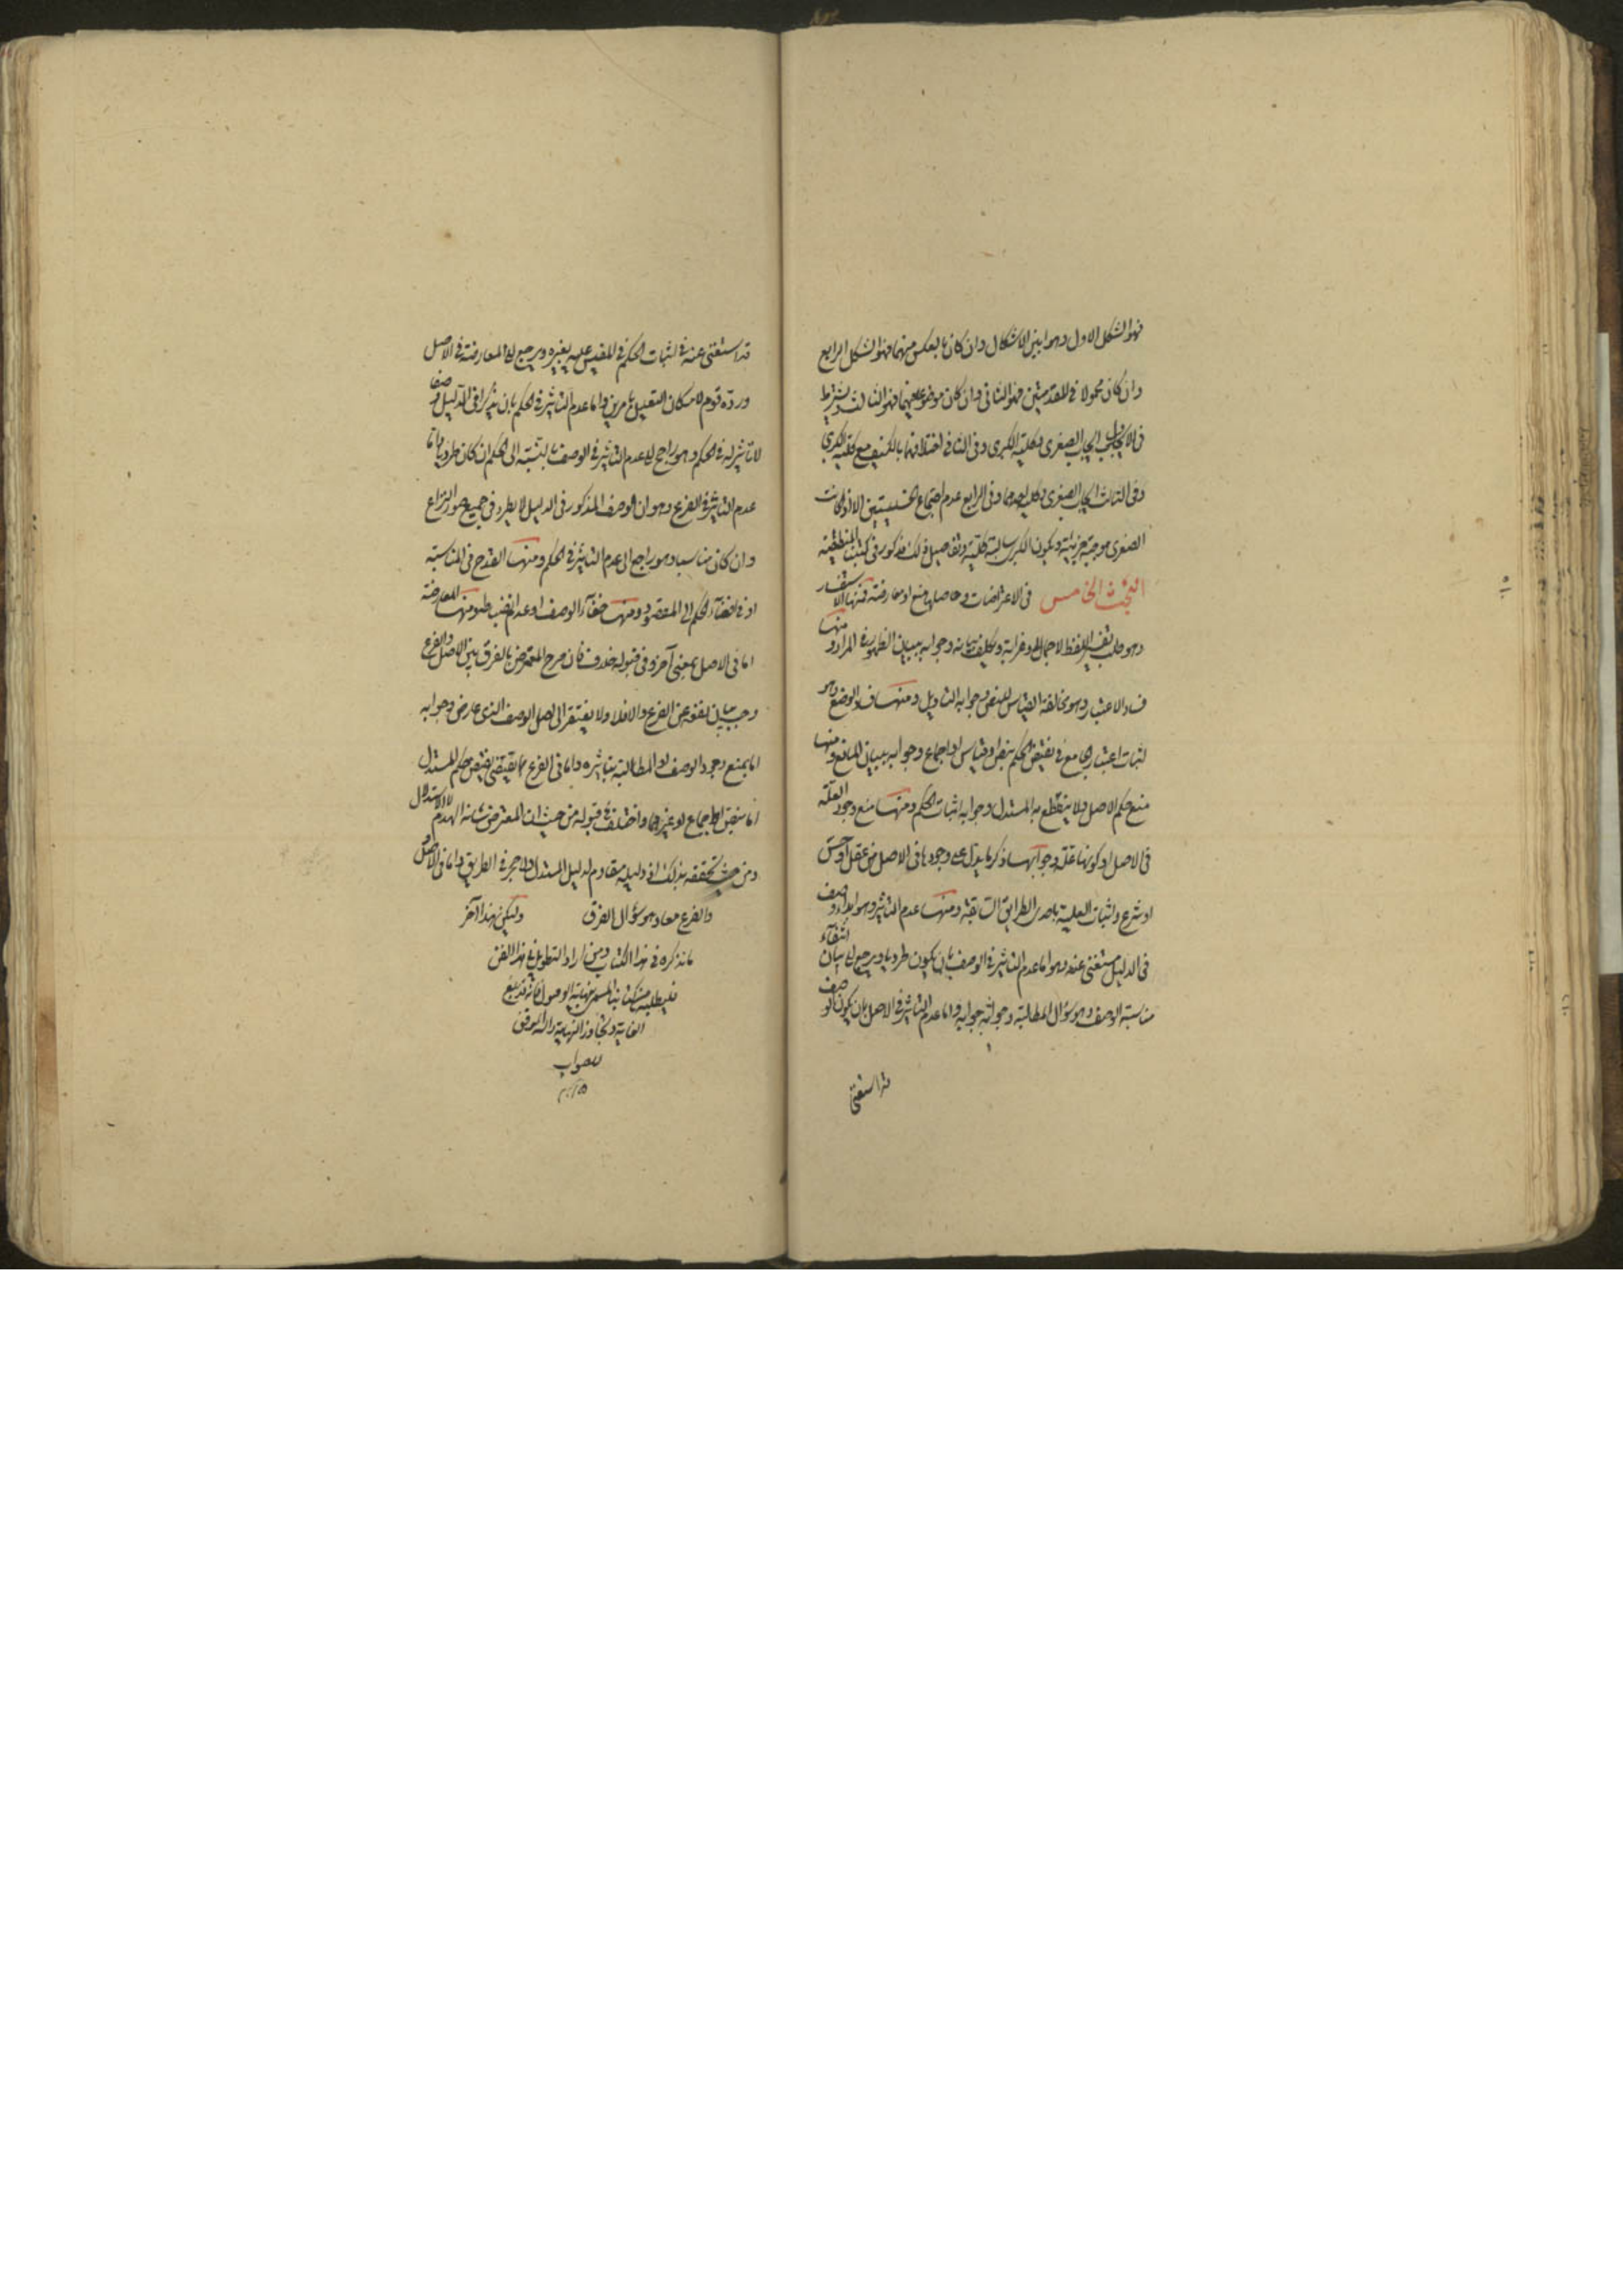 فهو الشكل الاول وهو ابين الاشكال وان كان بالعكس منهما فهو الشكل الرابع
وان كان محمولا في المقدمتين فهو الثاني وان كان موضوعا فيهما فهو الثالث ويشترط
في الاول ايجاب الصغرى وكلية الكبرى وفي الثاني اختلافهما بالكيف مع كلية الكبرى
وفي الثالث ايجاب الصغرى وكلية احدهما وفي الرابع عدم اجتماع الخستين الا اذا كانت
الصغرى موجبة جزئية ويكون الكبرى سالبة كلية وتفاصيل ذلك مذكور في كتبنا المنطقية
البحث الخامس في الاعتراضات وحاصلها منع او معارضة فمنها الاستفسار
وهو طلب تفسير اللفظ لاجماله او غرابة وجوابه ببيان الظهور في المراد ومنها
فساد الاعتبار وهو مخالفة القياس للنص وجوابه التاويل ومنها فساد الوضع وهو
اثبات اعتبار الجامع في نقيض الحكم بنص او قياس او اجماع وجوابه ببيان المانع ومنها
منع حكم الاصل ولا ينقطع به المستدل وجوابه اثبات الحكم ومنها منع وجود العلة
في الاصل او كونها علة وجوابها ذكر ما يدل على وجودها في الاصل من عقل او حس
او شرع واثبات العلية باحد الطرايق السابقة ومنها عدم التاثير وهو ابداء وصف
في الدليل مستغنى عنه وهو اما عدم التاثير في الوصف بان يكون طرديا ويرجع الى بيان انتفاء
مناسبة الوصف وهو سؤال المطالبة وجوابه جوابه واما عدم التاثير في الاصل بان يكون الوصف
قد استغنى
قد استغنى عنه في اثبات الحكم في المقيس عليه بغيره ويرجع الى المعارضة في الاصل
ورده قوم لامكان التعليل بامرين واما عدم التاثير في الحكم بان يذكر في الدليل وصفا
لا تاثير له في الحكم وهو راجع الى عدم التاثير في الوصف بالنسبة الى الحكم ان كان طرديا واما
عدم التاثير في الفرع وهو ان الوصف المذكور في الدليل لا يطرد في جميع صور النزاع
وان كان مناسبا وهو راجع الى عدم التاثير في الحكم ومنها القدح في المناسبة
او في افضاء الحكم الى المقصود ومنها خفاء الوصف او عدم انضباطه ومنها المعارضة
اما في الاصل بمعنى آخر وفي قبوله خلاف فان صرح المعترض بالفرق بين الاصل والفرع
وجب بيان نفيه عن الفرع والا فلا ولا يفتقر الى اصل الوصف الذي عارض وجوابه
اما بمنع وجود الوصف او المطالبة بتاثيره واما في الفرع بما يقتضي نقيض حكم المستدل
اما بنص او اجماع او غيرهما واختلف في قبوله من حيث ان المعترض شانه الهدم لا الاستدلال
ومن حيث تحققه بذلك اذ دليله مقاوم لدليل المستدل ولا حجر في الطريق واما في الاصل
والفرع معا وهو سؤال الفرق وليكن هذا آخر
ما نذكره في هذا الكتاب ومن اراد التطويل في هذا الفن
فليطلبه من كتابنا المسمى نهاية الوصول فانه قد بلغ
الغاية وتجاوز النهاية والله الموفق
للصواب